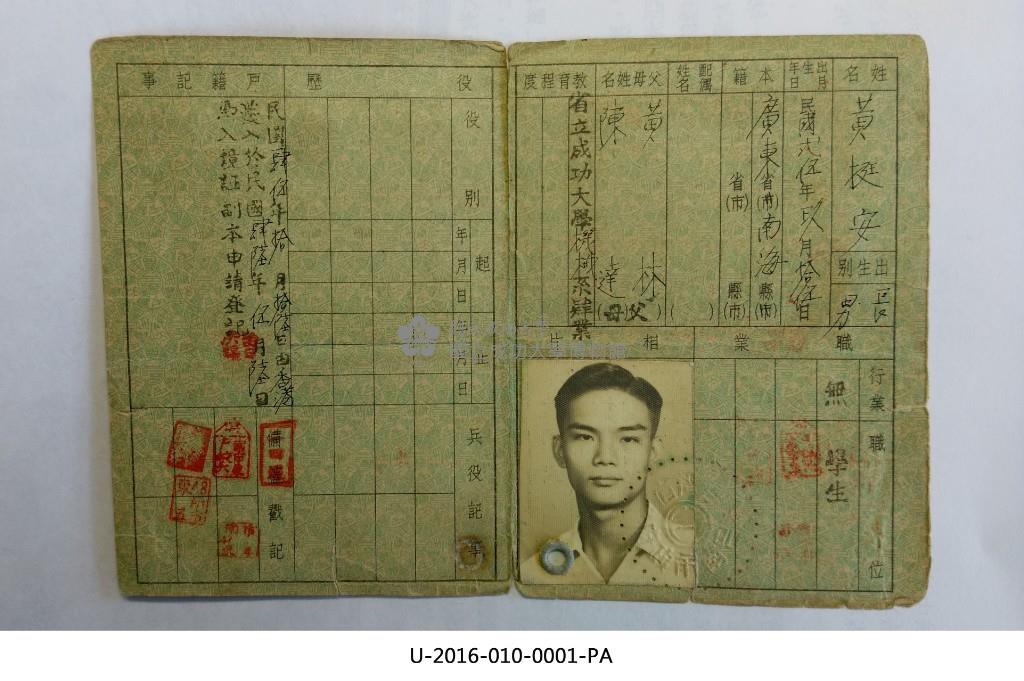 姓名
黃挺安
出生別
長男
出生年月日
民國貳伍年玖月拾伍日
本籍
廣東省(市)南海縣(市)
省(市)縣(市)
配偶姓名
父母姓名
父
黃林
母
陳達
教育程度
省立成功大學機械系肄業
職業
行業
無
職位
學生
相片
役歷
役別
起年月日
止年月日
兵役記事
戶籍記事
民國肆伍年拾月拾陸日由香港
遷入於民國肆陸年伍月陸日
馮入境証副本申請登記
備註戳記
U-2016-010-0001-PA